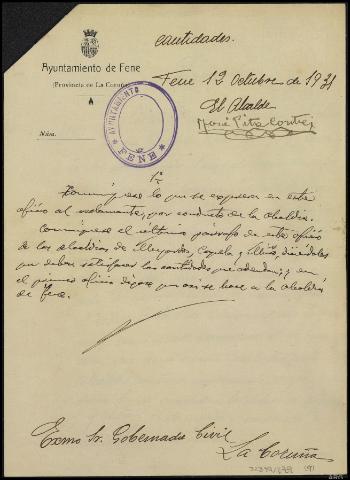 cantidades.
Ayuntamiento de Fene
(Provincia de La Coruña)
Fene 12 Octubre de 1931
El Alcalde
José Pita
Núm.
AYUNTAMIENTO
FENE
1º
lo que se expresa en este
oficio al reclamante, por conducto de la Alcaldía.
el último párrafo de este oficio
de las alcaldías de Mugardos, Capela y
que deben satisfacer las cantidades que adeudan; y en
el primer oficio dígase que así se hace a la Alcaldía
de Fene.
Excmo Sr. Gobernador Civil
La Coruña